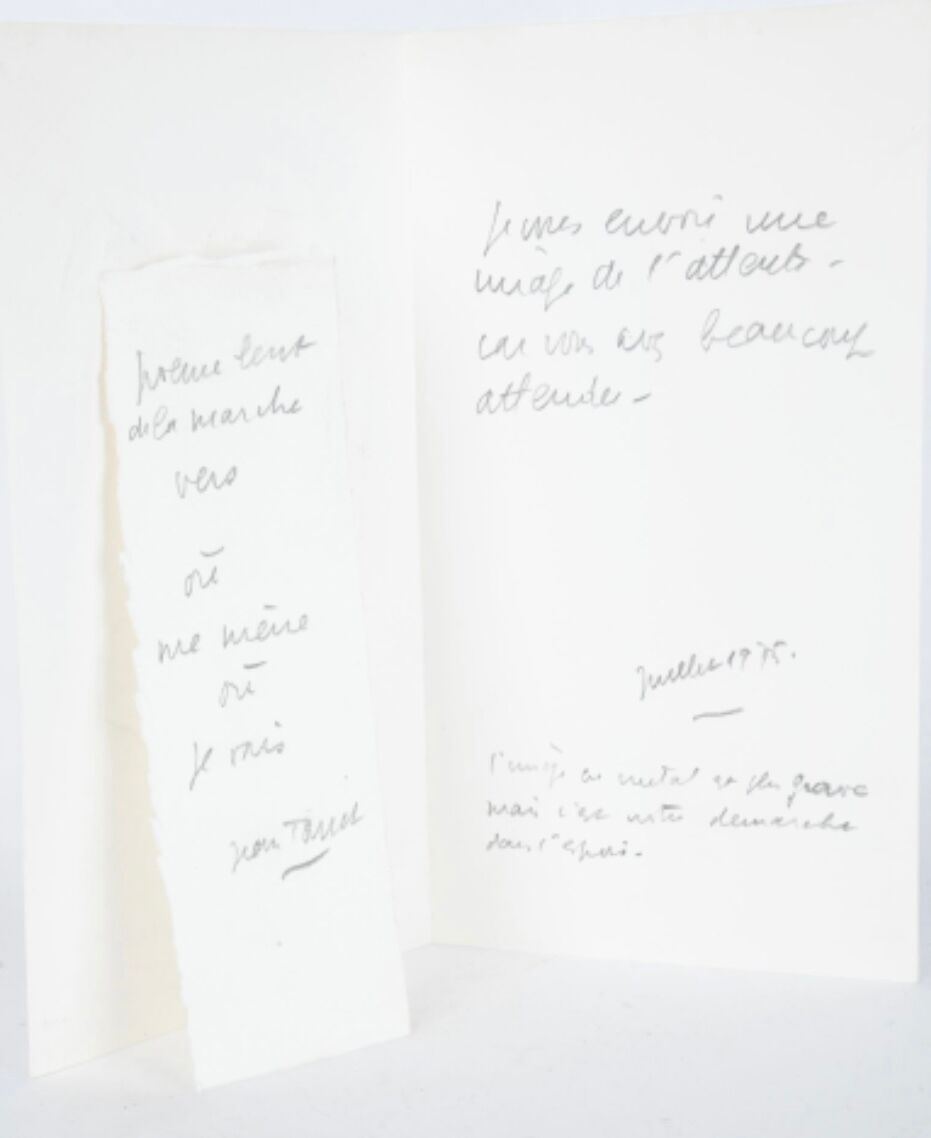 poème lent
de la marche
vers
où
me mène
où
je vais
Je vous envoie une
image de l'attente -
car vous avez beaucoup
attendu -
juillet 1975.
l'image en métal est plus grave
mais c'est notre démarche
dans l'espoir.